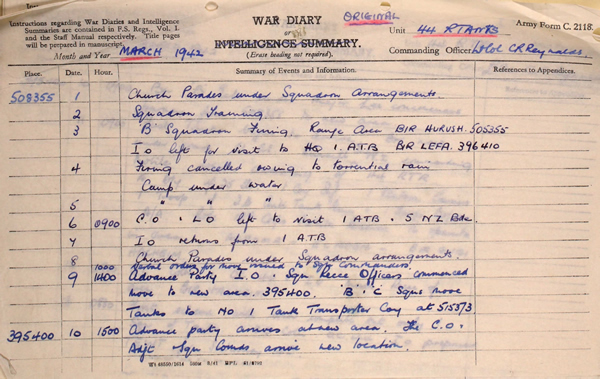 Instructions regarding War Diaries and Intelligence
Summaries are contained in F.S. Regs., Vol. I.
and the Staff Manual respectively. Title pages
will be prepared in manuscript.
Month and Year MARCH 1942
WAR DIARY
or
INTELLIGENCE SUMMARY.
(Erase heading not required).
ORIGINAL
Army Form C. 2118.
Unit 44 R TANKS
Commanding Officer Lt Col C R Reynolds
Place. Date. Hour. Summary of Events and Information. References to Appendices.
508355 1 Church Parades under Squadron Arrangements
2 Squadron Training
3 'B' Squadron Firing, Range Area BIR HURUSH. 505355
I O left for visit to HQ 1. A.T.B BIR LEFA. 396410
4 Firing cancelled owing to torrential rain
Camp under water
5 " " "
6 0900 C.O. LO left to visit 1 ATB. 5 NZ Bde.
7 I O returns from 1 A.T.B
8 Church Parades under Squadron arrangements.
1000 Verbal orders for move issued to Sqn Commanders.
9 1400 Advance Party I.O. Sqn Recce Officers commenced
move to new area. 395400. 'B' 'C' Sqns move
Tanks to No 1 Tank Transporter Coy at 515373
395400 10 1500 Advance party arrives at new area. The C.O.
Adjt Sqn Comds arrive new location.